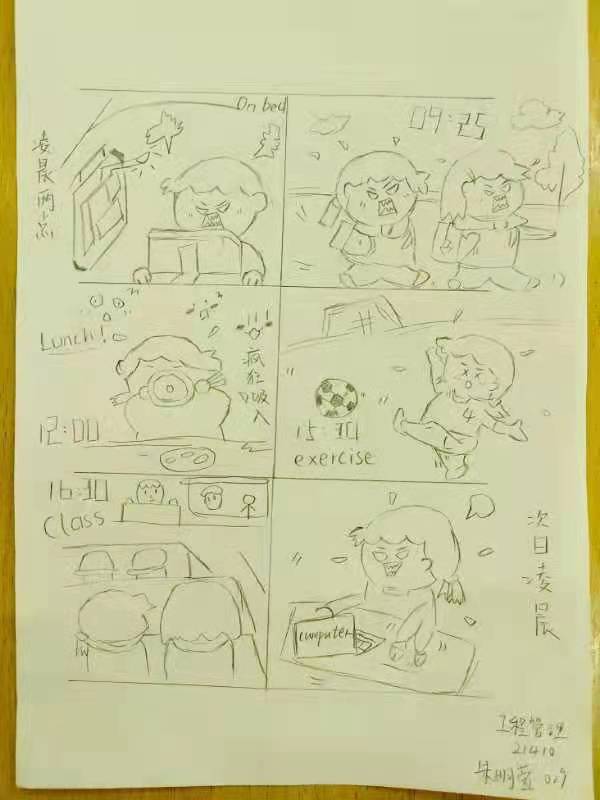 On bed
凌晨两点
09:25
Lunch!
疯狂吸入
12:00
15:30
exercise
4
16:30
Class
computer
次日凌晨
工程管理
21410
029